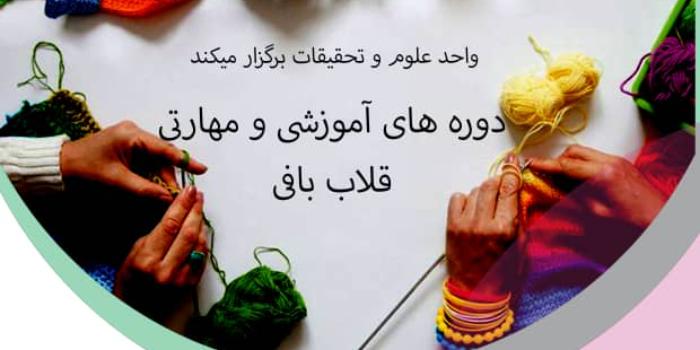 واحد علوم و تحقیقات برگزار میکند
دوره های آموزشی و مهارتی
قلاب بافی